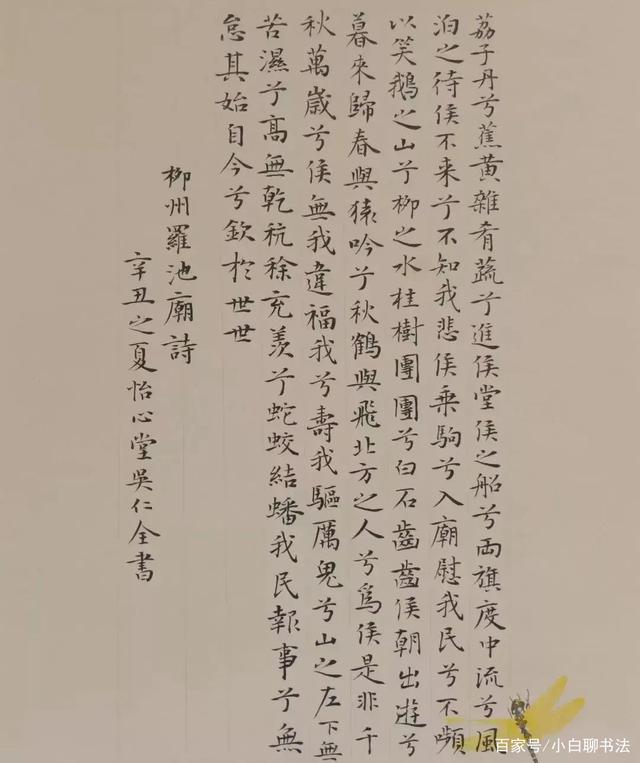 荔子丹兮蕉黄雜肴蔬兮進侯堂侯之船兮兩旗度中流兮風
泊之待侯不来兮不知我悲侯乗駒兮入廟慰我民兮不嚬
以笑鵝之山兮柳之水桂樹團團兮白石齒齒侯朝出遊兮
暮來歸春與猿吟兮秋鶴與飛北方之人兮為侯是非千
秋萬歲兮侯無我違福我兮壽我驅厲鬼兮山之左下無
苦濕兮高無乾秔稌充羨兮蛇蛟結蟠我民報事兮無
怠其始自今兮欽於世世
柳州羅池廟詩
辛丑之夏怡心堂吳仁全書
百家号/小白聊书法